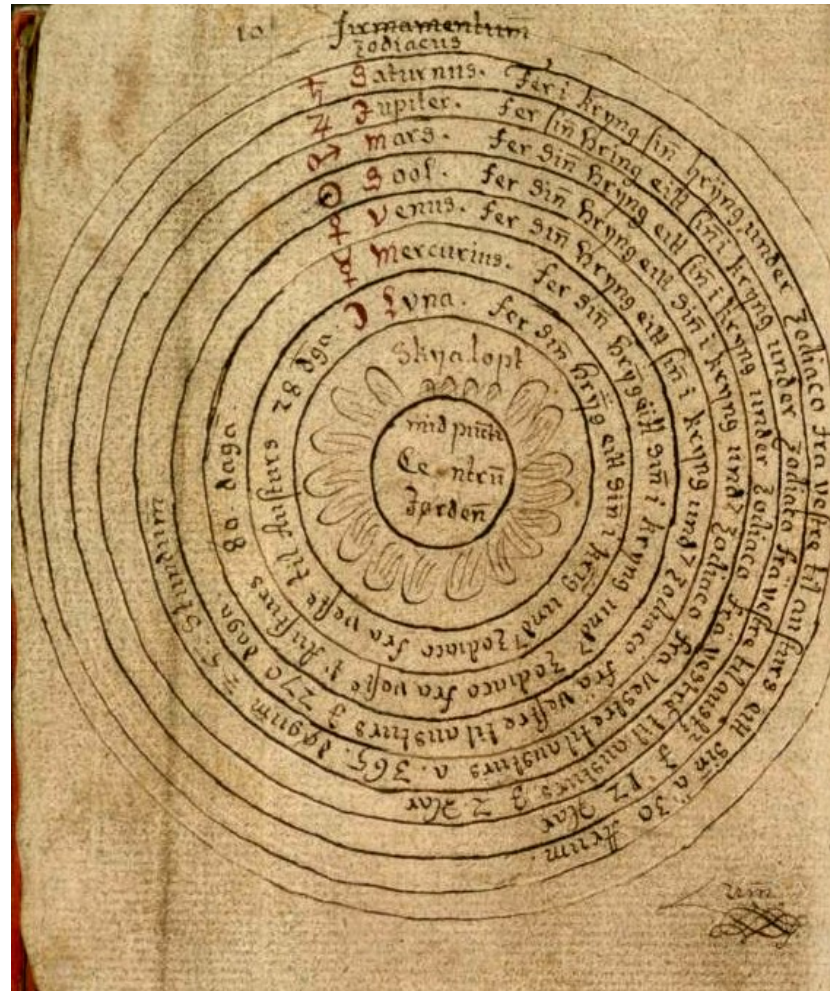 10 firmamentum̄
zodiacus
♄ Saturnus. Fer i kryng sin̄ hryng under Zodiaco fra vestre til austurs eitt sin̄ a 30 Arum.
♃ Jupiter. fer sin̄ hring eitt sin̄ i kryng under Zodiaco fra vestre til austꝛ̄ J 12 Aar
♂ mars. fer sin̄ hryng eitt sin̄ i kryng under Zodiaco fra vestre til austurs J 2 Aar
☉ Sool. fer sin̄ hryng eitt sin̄ i kryng und᾽ Zodiaco fra vestre til austurs a. 365. dagum̄ Z 5. Stundum̄
♀ Venus. fer sin̄ hryng eitt sin̄ i kryng und᾽ Zodiaco fra vestre til austurs J 270 daga.
☿ Mercurius. fer sin̄ hrȳg eitt sin̄ i kryng und᾽ Zodiaco fra Austurs 80 daga.
☽ Lyna. fer sin̄ hrȳg eitt sin̄ i krīg und᾽ Zodiaco fra til Austurs 28 dga.
Skyalopt
mid pūctr
Centrū
Jorden̄